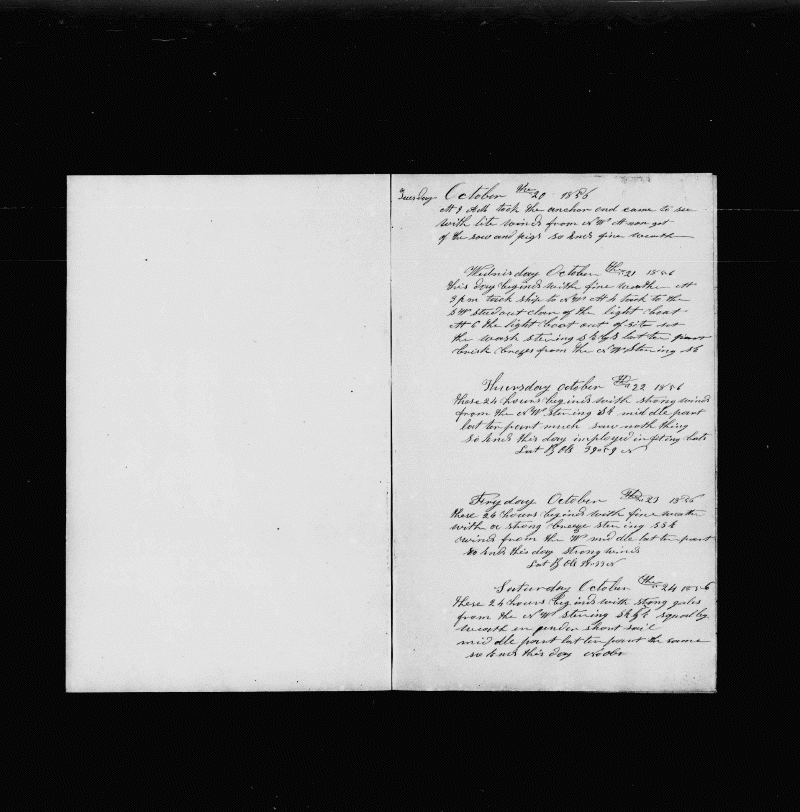 Tuesday October the 20 1856
At 9 AM took the anchor and came to see
with lite winds from NW At non got
of the sow and pigs so Ends fine weath
Wednisday October the 21 1856
this day begins with fine weather At
3 pm tack ship to NW At 4 tack to the
SW stud out clear of the light boat
At 6 the light boat out of site set
the wash stering latter part
brisk breezes from the NW Stering SE
Thursday october the 22 1856
these 24 hours beginds with strong winds
from the NW stering SE middle part
latter part much saw noth thing
so Ends this day imployed in fiting bats
Lat by Obs 39 59 N
Fryday October the 23 1856
these 24 hours beginds with fine weather
with a strong breeze stering SSE
winds from the W middle latter part
so Ends this day strong winds
Lat by Obs N
Saturday October the 24 1856
these 24 hours beginds with strong gales
from the NW stering squaly
weath en under short sail
middle part latter part the same
so Ends this day no obs